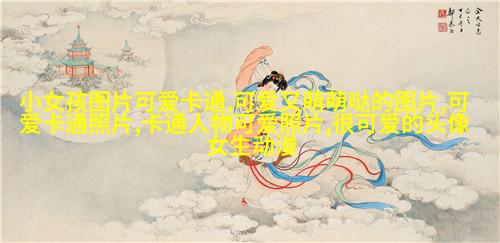 小女孩图片可爱卡通,可爱又萌萌哒的图片,可
爱卡通照片,卡通人物可爱照片,很可爱的头像
女生动漫